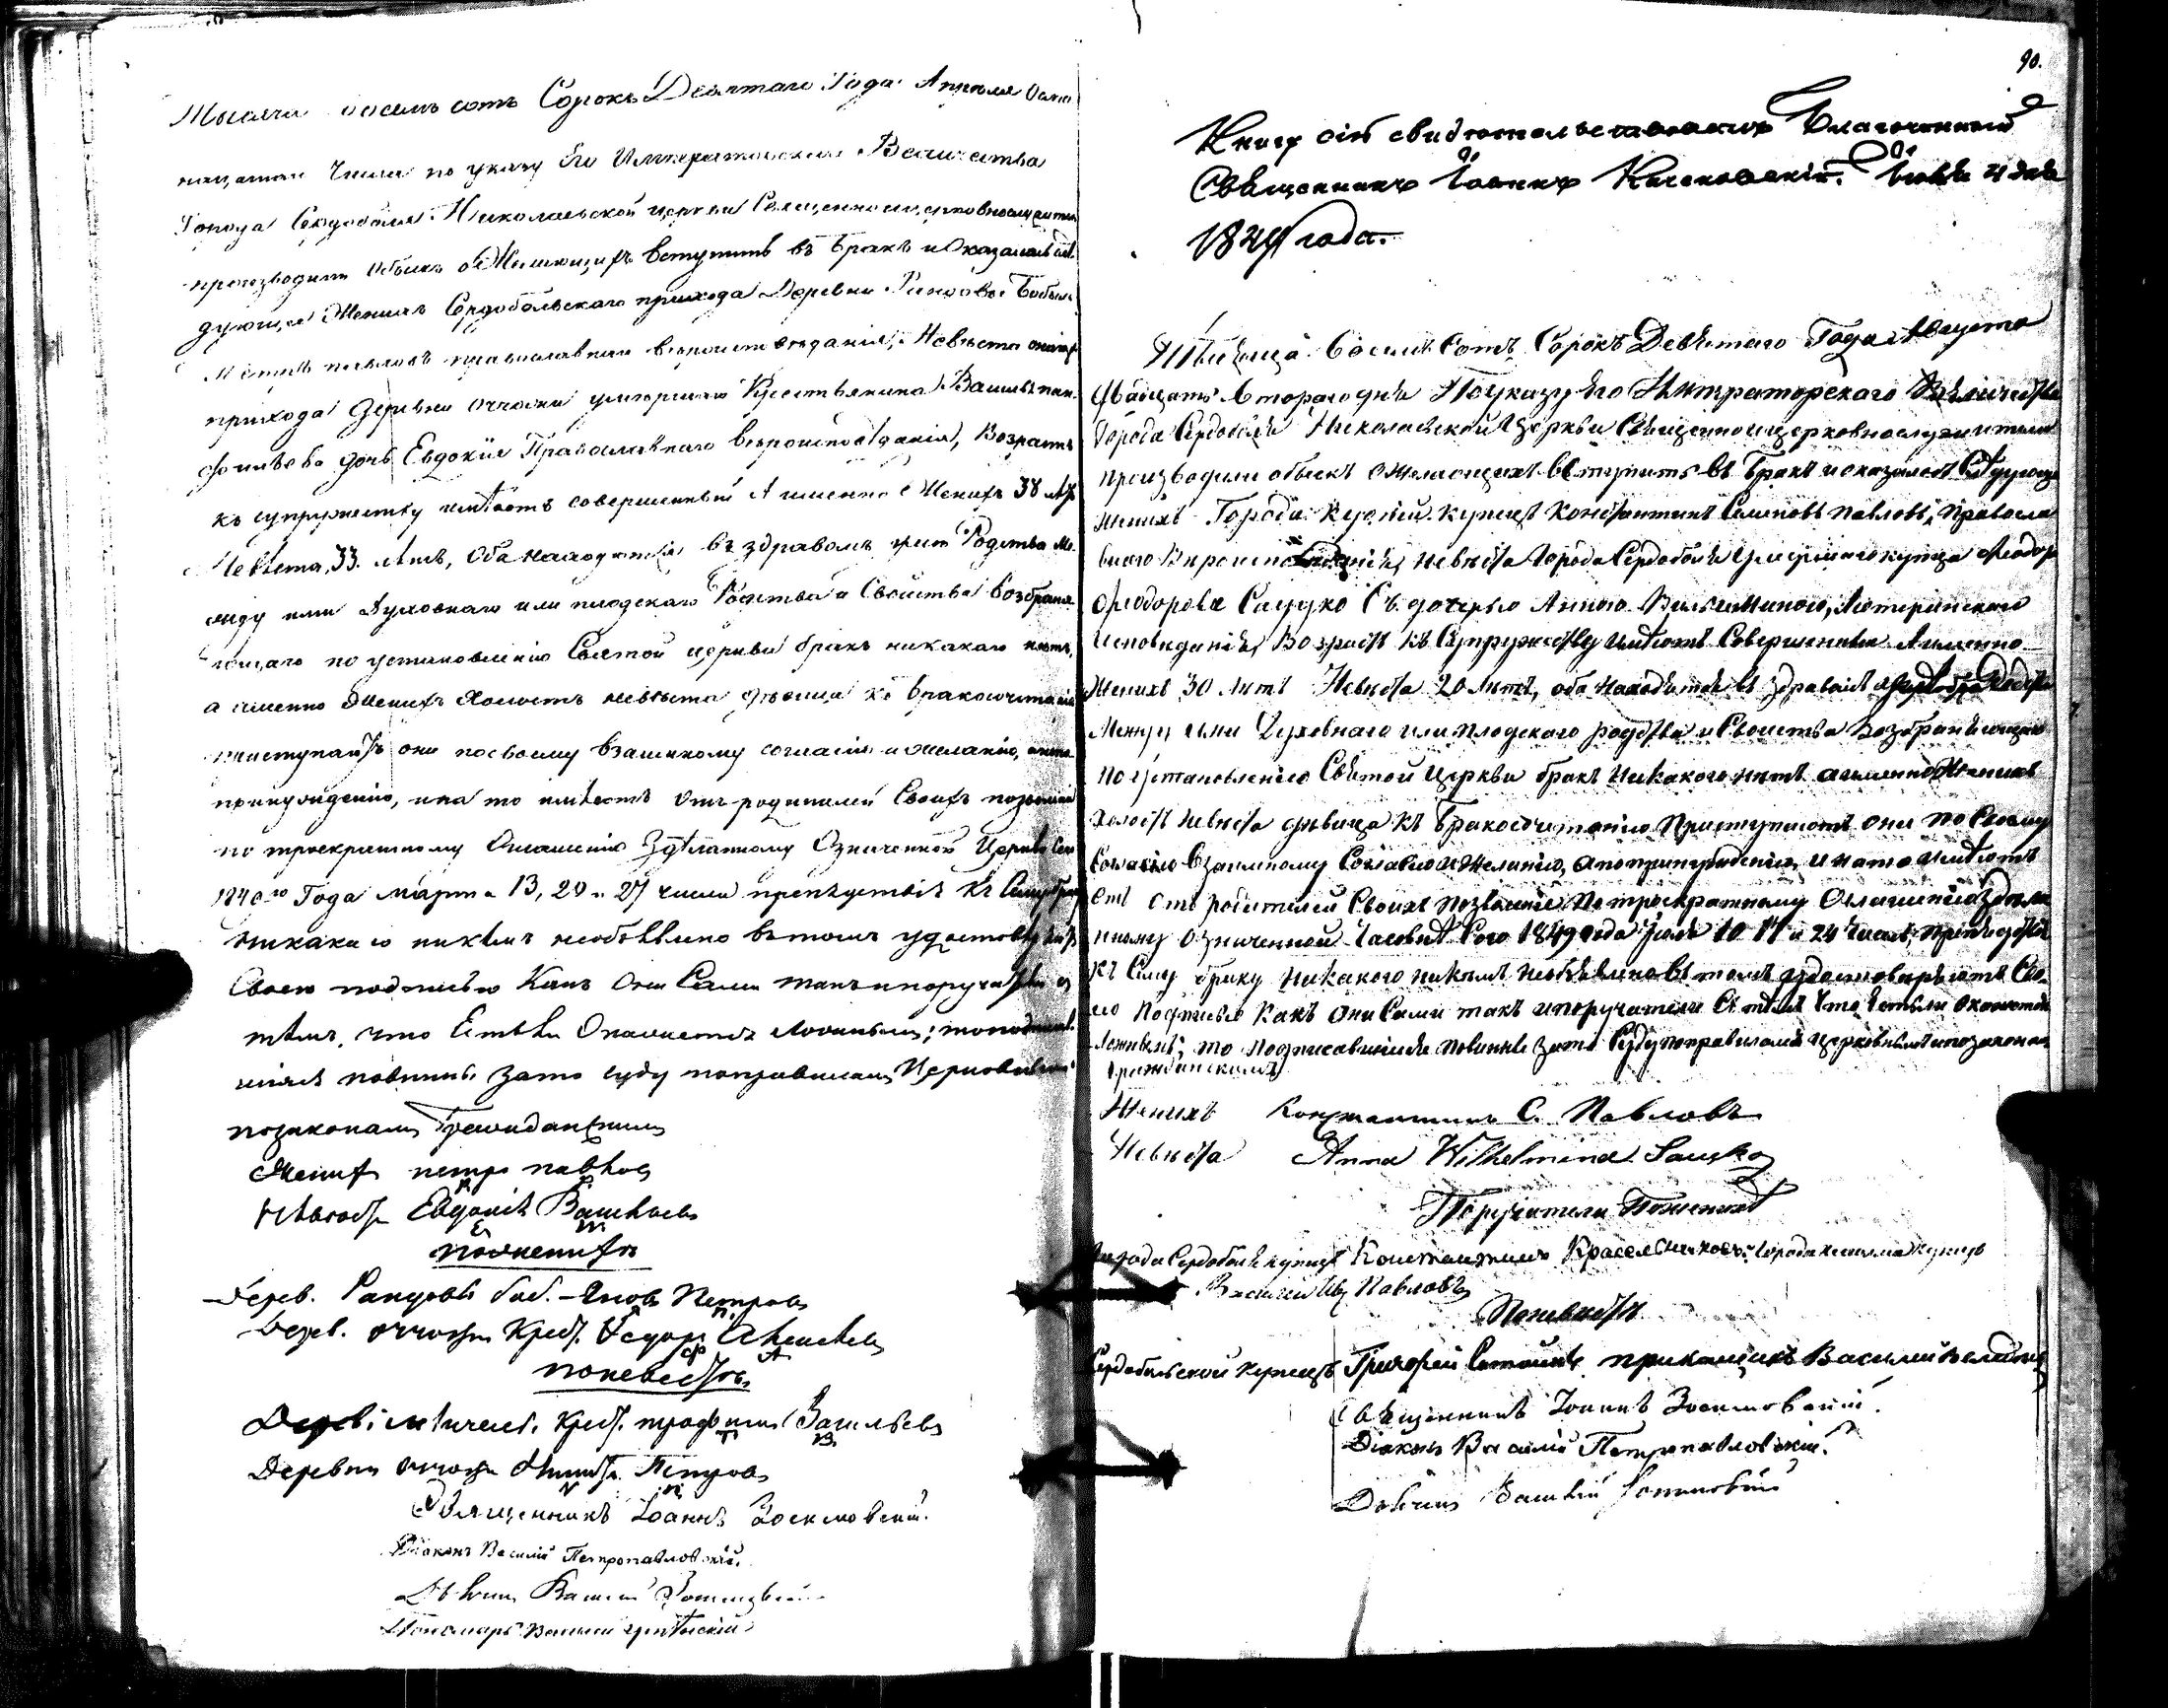 Тысяча восемь сотъ Сорокъ Девятаго Года Апреля осм
надцатаго Числа по указу Его Императорскаго Величества
Города Сердоболя Николаевской церкви Священно и церковнослужители
производили обыскъ о Желающихъ вступить въ бракъ и Оказалось слѣ
дующее Женихъ Сердобольскаго прихода Деревни Бобыль
Петръ Павловъ православнаго вероисповеданія, Невеста онагож
прихода Деревни Оччойси умершаго Крестьянина
дочь Евдокія Православнаго вероисповеданія, Возрастъ
къ супружеству имѣютъ совершенный А именно Женихъ 38 лѣтъ
Невѣста, 33. лѣтъ, Оба находятся въ здравомъ Родства ме
жду ими Духовнаго или плодскаго Родства и Свойства возбраня
ющаго по установленію Святой церкви бракъ никакаго нѣтъ,
а именно Женихъ Холостъ невѣста дѣвица къ бракосочетанію
приступаютъ они посвоему взаимному согласію и желанію, а непо
принужденію, и на то имѣютъ Отъ родителей Своихъ позволеніе
по троекратному Оглашенію Здѣланному Означенной Церкви Сего
1849го Года марта 13, 20 и 27 числа препядствія къ Сему браку
никакаго никѣмъ необъявлено въ томъ удостовѣряютъ
Своею подписью Какъ Они Сами такъ и поручатели съ
тѣмъ, что Естьли Окажется Ложнымъ; то подписав
шіяся повинны зато суду поправиламъ Церковнымъ
позаконамъ Гражданскимъ
Женихъ петръ павловъ
Невѣста Евдокія Васильева
пожениху
Дерев. Яковъ Петровъ
Дерев. Оччойси Крест. Федоръ Алексеевъ
поневестѣ
Дерев. Крест. трофимъ Васильевъ
Деревни Оччойси Никита Петровъ
Священникъ Іоаннъ Зосимовскій.
Діаконъ Василій Петропавловскій.
Дьячекъ Василій
Пономарь Василій
90.
Книгу сію свидетельствовалъ Благочинный
Священникъ Іоаннъ дня
1849 года.
Тысяща восемь Сотъ Сорокъ Девятаго Года Августа
Двадцать втораго дня По указу Его Императорскаго Величества
Города Сердоболя Николаевской Церкви Священно и церковнослужители
производили обыскъ о Желающихъ вступить въ бракъ и оказалось Слѣдующе
женихъ Города купецъ Константинъ Семеновъ Павловъ, Правосла
внаго Вероисповеданія, невѣста Города Сердоболя умершаго купца Феодор
Феодорова Сацуко Съ дочерью Анною Вильгельминою, Лютеранскаго
исповеданія, Возрастъ къ Супружеству имѣютъ Совершенный А именно
Женихъ 30 лѣтъ Невѣста 20 лѣтъ, оба находятся въ здравомъ
Между ими Духовнаго или плодскаго родства и Свойства Возбраняющаго
по установленію Святой Церкви бракъ никакого нѣтъ а именно Женихъ
Холостъ невѣста дѣвица къ Бракосочетанію Приступаютъ они по Своему
Взаимному Согласію и Желанію, а не по принужденію, и на то имѣютъ
отъ родителей Своихъ позволеніе, По троекратному Оглашенію здѣла
нному Означенной Сего 1849 года Іюля 10 17 и 24 числъ, препядствія
къ Сему браку никакого никѣмъ необъявлено въ томъ удостоверяютъ Сво
ею Подписью Какъ Они Сами такъ и поручатели Съ тѣмъ что естьли окажется
Ложнымъ, то подписавшіяся повинны зато Суду поправиламъ церковнымъ и по законамъ
Гражданскимъ
Женихъ Константинъ С. Павловъ
Невѣста Anna Wilhelmina Sauzko
Поручатели Поженихѣ
Города Сердоболя купецъ Константинъ Города купецъ
Василій Ив Павловъ
Поневѣстѣ
Сердобольской купецъ Григорей прикащикъ Василій
Священникъ Іоаннъ Зосимовскій.
Діаконъ Василій Петропавловскій.
Дьячекъ Василій